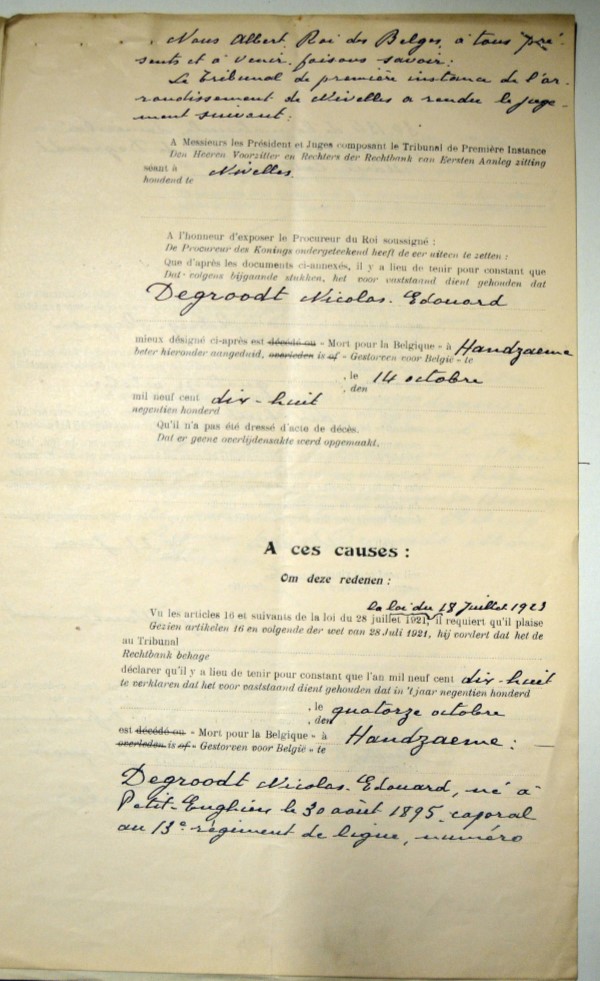 Nous Albert, Roi des Belges, à tous pré-
sents et à venir, faisons savoir:
Le Tribunal de première instance de l'ar-
rondissement de Nivelles a rendu le juge-
ment suivant:
A Messieurs les Président et Juges composant le Tribunal de Première Instance
Den Heeren Voorzitter en Rechters der Rechtbank van Eersten Aanleg zitting
séant à Nivelles.
houdend te
A l'honneur d'exposer le Procureur du Roi soussigné :
De Procureur des Konings ondergeteekend heeft de eer uiteen te zetten :
Que d'après les documents ci-annexés, il y a lieu de tenir pour constant que
Dat volgens bijgaande stukken, het voor vaststaand dient gehouden dat
Degroodt Nicolas-Edouard
mieux désigné ci-après est décédé ou « Mort pour la Belgique » à Handzaeme
beter hieronder aangeduid, overleden is of « Gestorven voor België » te
, le 14 octobre
, den
mil neuf cent dix-huit
negentien honderd
Qu'il n'a pas été dressé d'acte de décès.
Dat er geene overlijdensakte werd opgemaakt.
A ces causes :
Om deze redenen :
la loi du 18 Juillet 1923
Vu les articles 16 et suivants de la loi du 28 juillet 1921, il requiert qu'il plaise
Gezien artikelen 16 en volgende der wet van 28 Juli 1921, hij vordert dat het de
au Tribunal
Rechtbank behage
déclarer qu'il y a lieu de tenir pour constant que l'an mil neuf cent dix-huit
te verklaren dat het voor vaststaand dient gehouden dat in 't jaar negentien honderd
, le quatorze octobre
, den
est décédé ou « Mort pour la Belgique » à Handzaeme :
overleden is of « Gestorven voor België » te
Degroodt Nicolas-Edouard, né à
Petit-Enghien le 30 août 1895, caporal
au 13e régiment de ligne, numéro